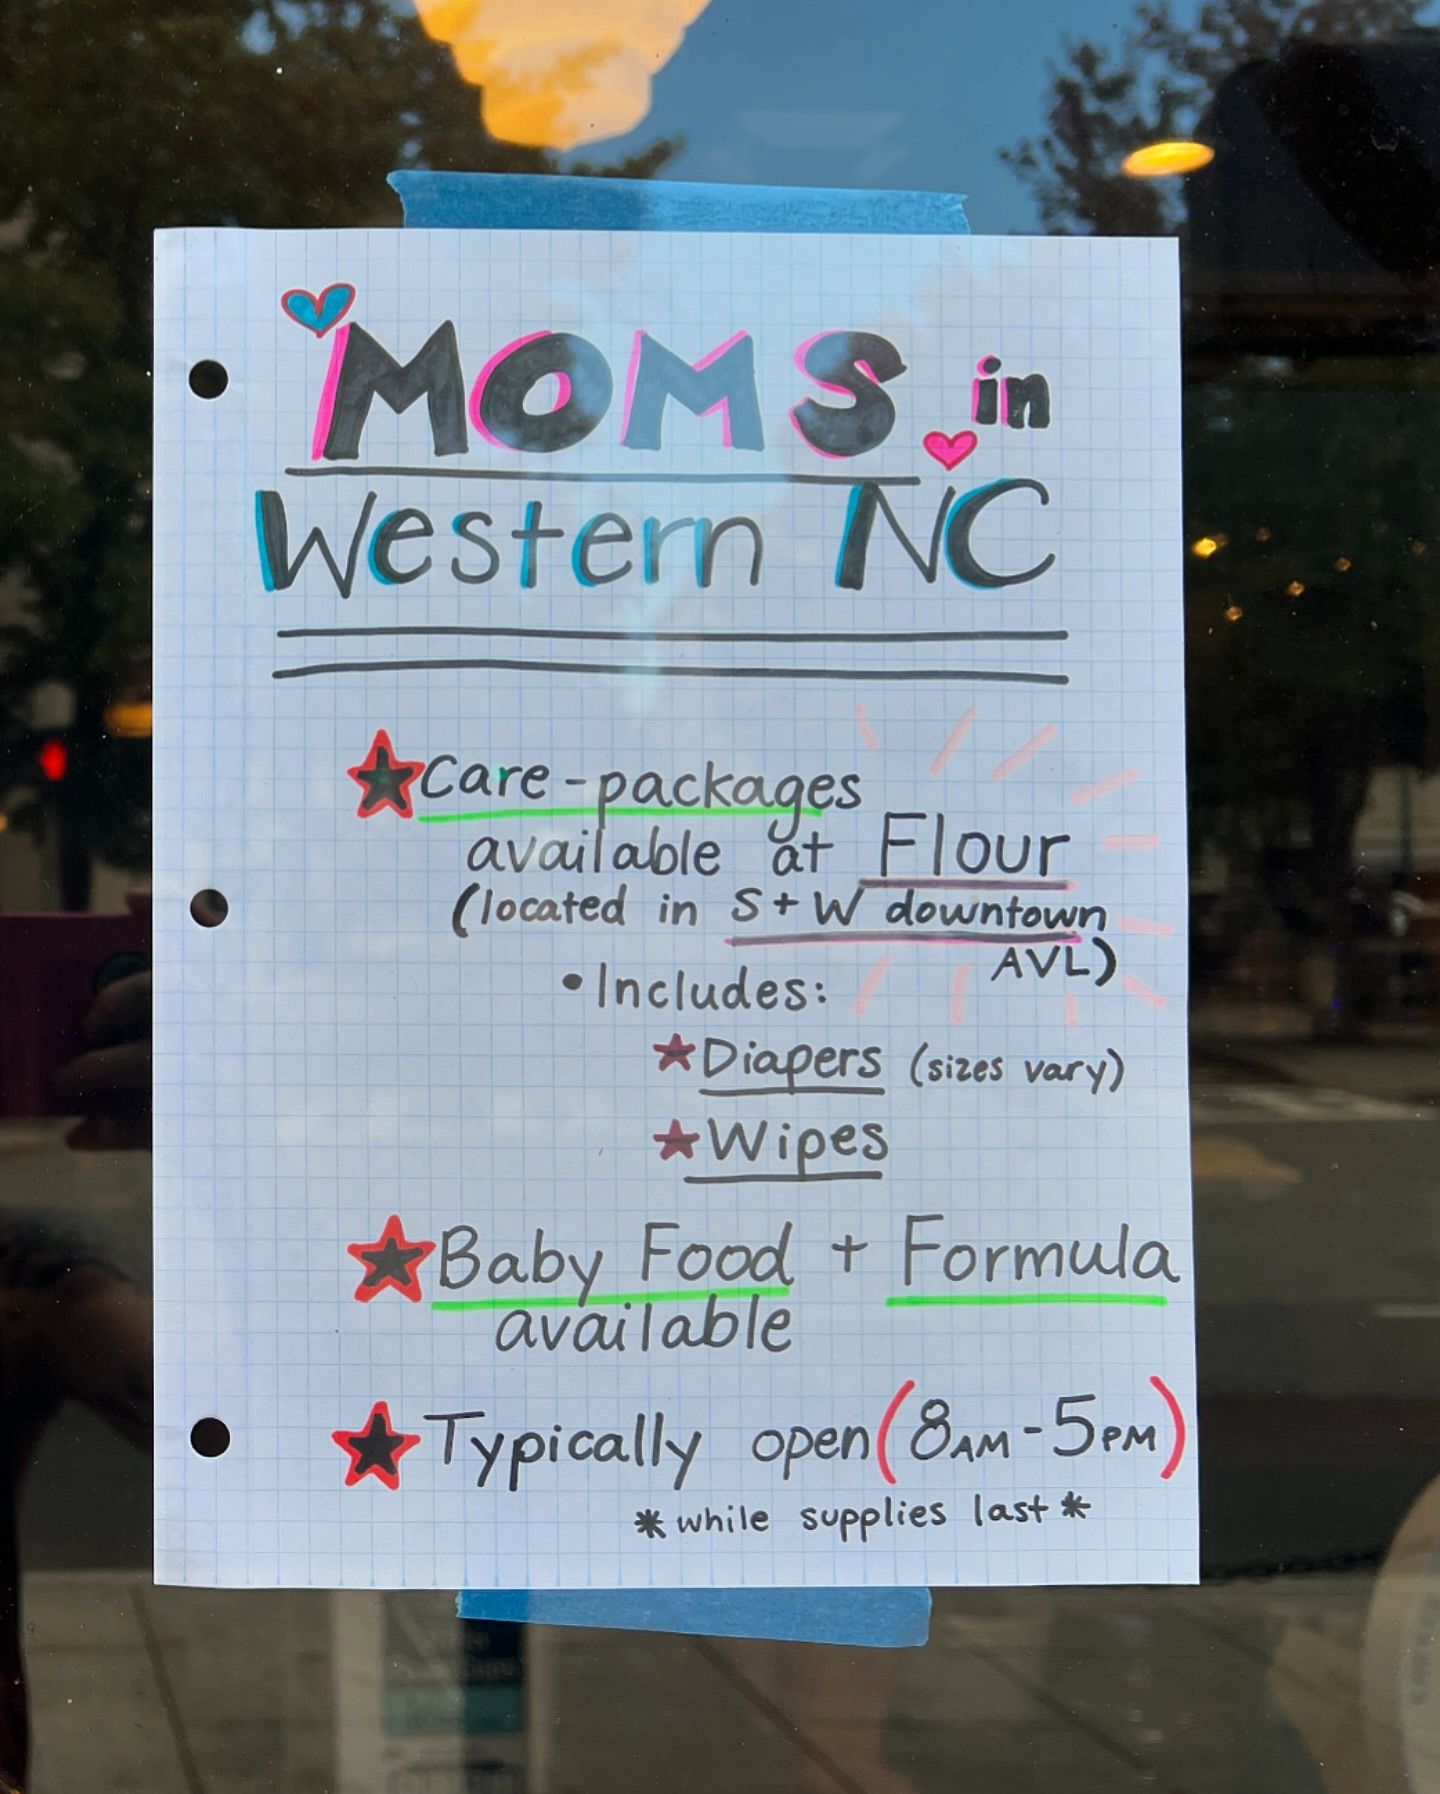 MOMS in
Western NC
Care-packages
available at Flour
(located in S+W downtown
AVL)
• Includes:
Diapers (sizes vary)
Wipes
Baby Food + Formula
available
Typically open (8AM-5PM)
*while supplies last*